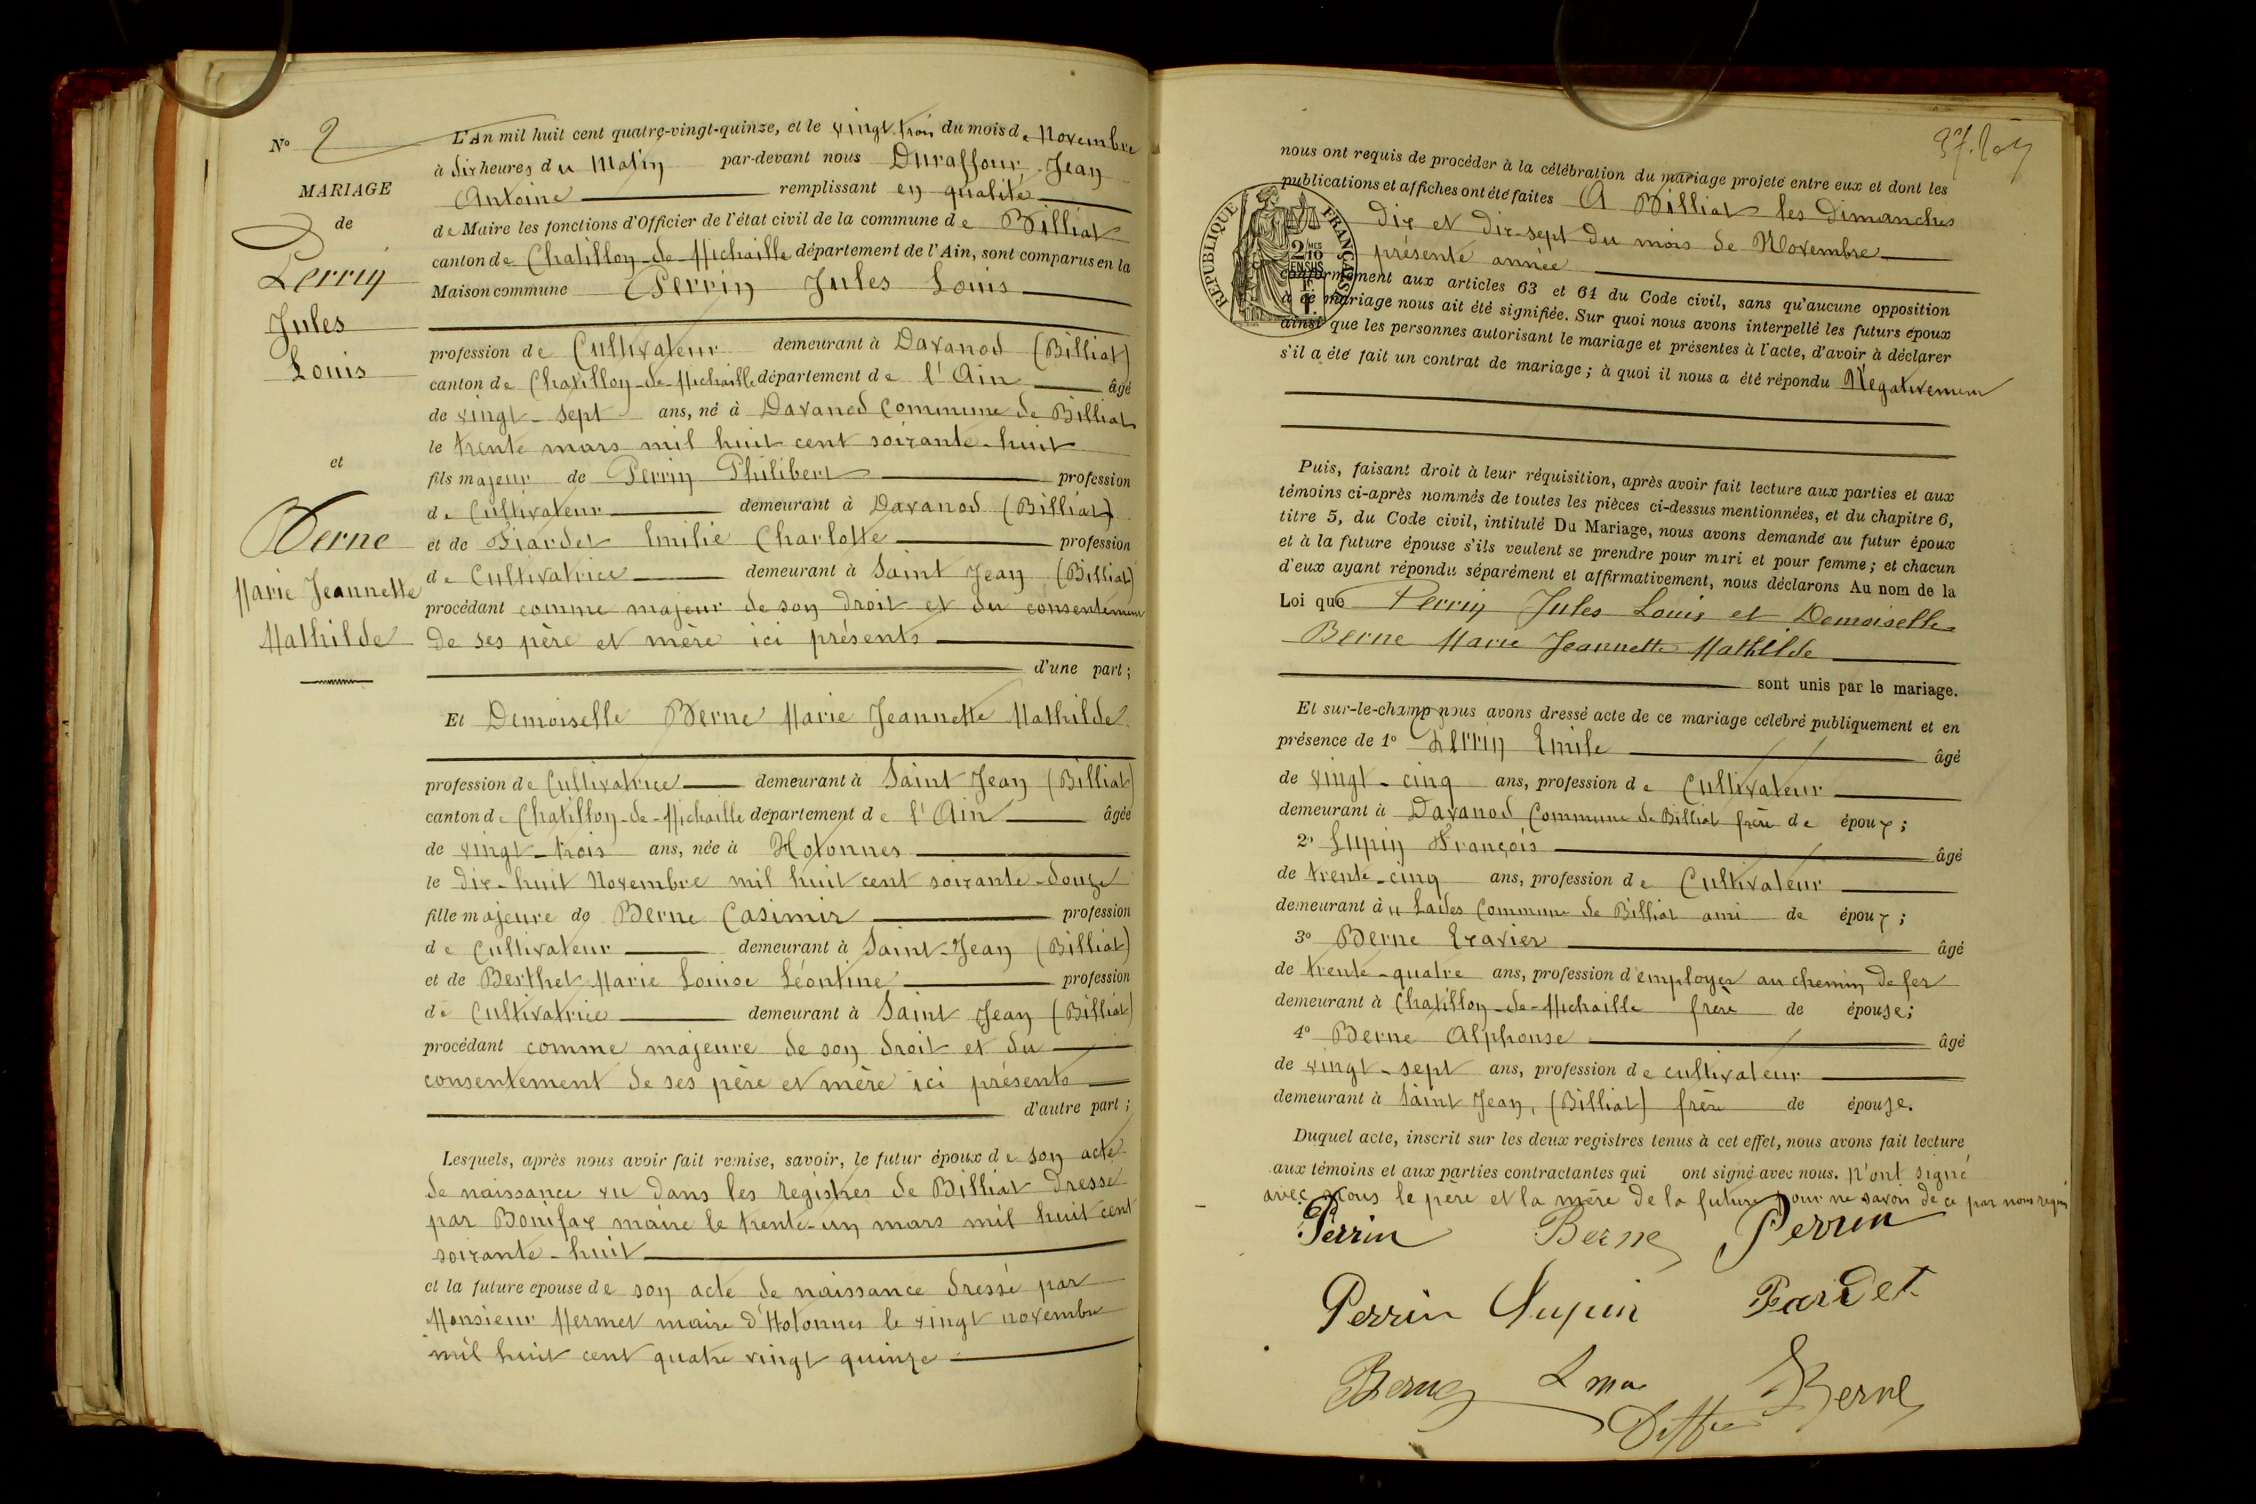 N° 2
MARIAGE
de
Perrin
Jules
Louis
et
Berne
Marie Jeannette
Mathilde
L'An mil huit cent quatre-vingt-quinze, et le vingt-trois du mois de Novembre
à dix heures du Matin par-devant nous Duraffour, Jean
Antoine remplissant en qualité
de Maire les fonctions d'Officier de l'état civil de la commune de Billiat
canton de Chatillon-de-Michaille département de l'Ain, sont comparus en la
Maison commune Perrin Jules Louis
profession de Cultivateur demeurant à Davanod (Billiat)
canton de Chatillon-de-Michaille département de l'Ain âgé
de vingt-sept ans, né à Davanod Commune de Billiat
le trente mars mil huit cent soixante-huit
fils majeur de Perrin Philibert profession
de Cultivateur demeurant à Davanod (Billiat)
et de Fiardet Emilie Charlotte profession
de Cultivatrice demeurant à Saint Jean (Billiat)
procédant comme majeur de son droit et du consentement
de ses père et mère ici présents
d'une part;
Et Demoiselle Berne Marie Jeannette Mathilde
profession de Cultivatrice demeurant à Saint Jean (Billiat)
canton de Chatillon-de-Michaille département de l'Ain âgée
de vingt-trois ans, née à Hotonnes
le dix-huit Novembre mil huit cent soixante-douze
fille majeure de Berne Casimir profession
de Cultivateur demeurant à Saint-Jean (Billiat)
et de Berthet Marie Louise Léontine profession
de Cultivatrice demeurant à Saint Jean (Billiat)
procédant comme majeure de son droit et du
consentement de ses père et mère ici présents
d'autre part;
Lesquels, après nous avoir fait remise, savoir, le futur époux de son acte
de naissance vu dans les registres de Billiat dressé
par Bonifax maire le trente-un mars mil huit cent
soixante-huit
et la future épouse de son acte de naissance dressé par
Monsieur Mermet maire d'Hotonnes le vingt novembre
mil huit cent quatre vingt quinze
nous ont requis de procéder à la célébration du mariage projeté entre eux et dont les
publications et affiches ont été faites A Billiat les Dimanches
dix et dix-sept du mois de Novembre
présente année
REPUBLIQUE FRANÇAISE
2 MES
10
EN SUS
conformément aux articles 63 et 64 du Code civil, sans qu'aucune opposition
à ce mariage nous ait été signifiée. Sur quoi nous avons interpellé les futurs époux
ainsi que les personnes autorisant le mariage et présentes à l'acte, d'avoir à déclarer
s'il a été fait un contrat de mariage; à quoi il nous a été répondu Négativement
Puis, faisant droit à leur réquisition, après avoir fait lecture aux parties et aux
témoins ci-après nommés de toutes les pièces ci-dessus mentionnées, et du chapitre 6,
titre 5, du Code civil, intitulé Du Mariage, nous avons demandé au futur époux
et à la future épouse s'ils veulent se prendre pour mari et pour femme; et chacun
d'eux ayant répondu séparément et affirmativement, nous déclarons Au nom de la
Loi que Perrin Jules Louis et Demoiselle
Berne Marie Jeannette Mathilde
sont unis par le mariage.
Et sur-le-champ nous avons dressé acte de ce mariage célébré publiquement et en
présence de 1° Perrin Emile âgé
de vingt-cinq ans, profession de Cultivateur
demeurant à Davanod Commune de Billiat frère de époux;
2° Lupin François âgé
de trente-cinq ans, profession de Cultivateur
demeurant à Lades Commune de Billiat ami de époux;
3° Berne Exavier âgé
de trente-quatre ans, profession d'employer au chemin de fer
demeurant à Chatillon-de-Michaille frère de épouse;
4° Berne Alphonse âgé
de vingt-sept ans, profession de cultivateur
demeurant à Saint Jean, (Billiat) frère de épouse.
Duquel acte, inscrit sur les deux registres tenus à cet effet, nous avons fait lecture
aux témoins et aux parties contractantes qui ont signé avec nous. n'ont signé
avec nous le père et la mère de la future pour ne savoir de ce par nous requis
Perrin Berne Perrin
Perrin Lupin Fiardet
Berne Berne